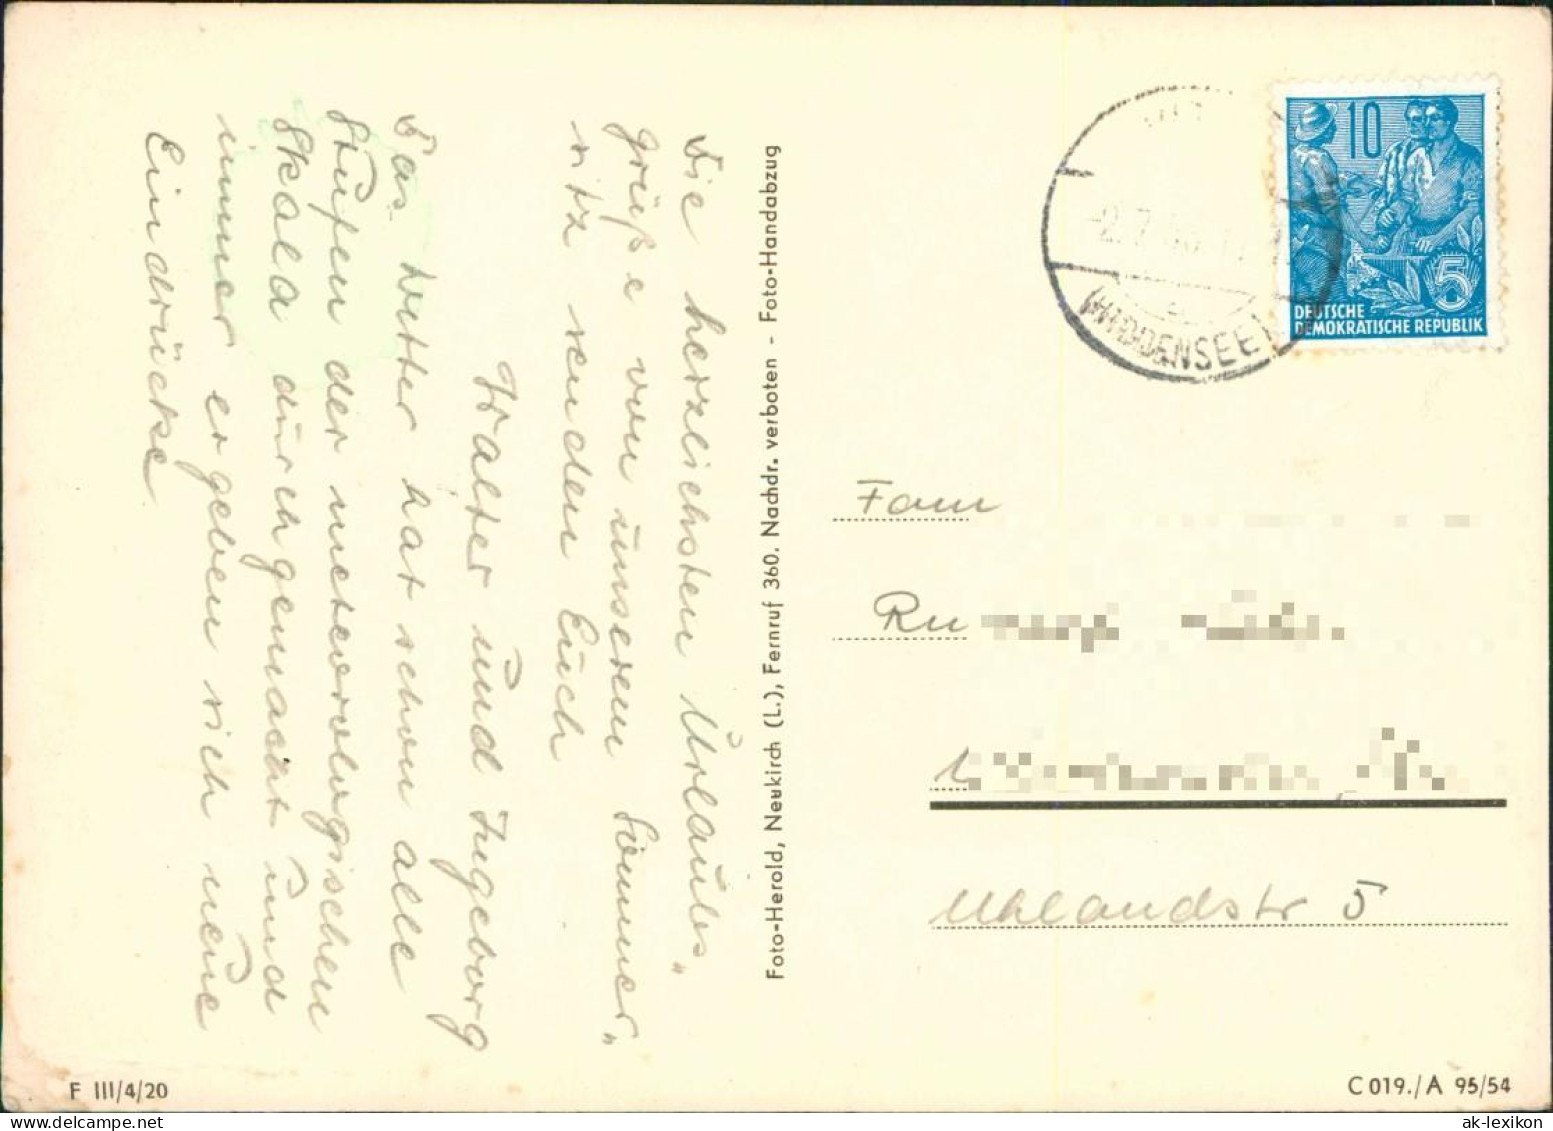 Die herzlichsten Urlaubs„
grüße von unserem Sommer„
sitz senden Euch
Walter und Ingeborg
Das Wetter hat schon alle
Stufen der meteorologischen
Skala durchgemacht und
immer ergeben sich neue
Eindrücke
Foto-Herold, Neukirch (L.), Fernruf 360. Nachdr. verboten - Foto-Handabzug
10
5
DEUTSCHE
DEMOKRATISCHE REPUBLIK
(HIDDENSEE)
Fam
Ru
Uhlandstr 5
F III/4/20
C 019./A 95/54
ak-lexikon